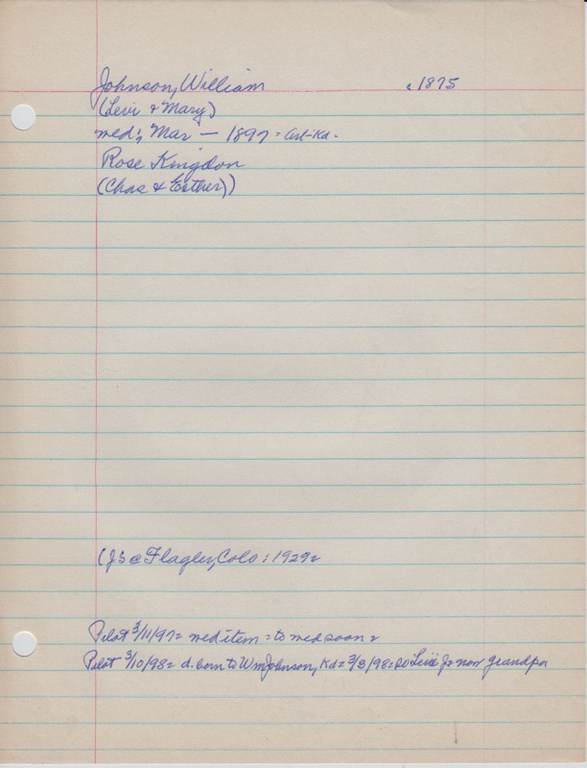 Johnson, William c 1875
(Levi & Mary)
med; Mar — 1897 = Art-Kd.
Rose Kingdon
(Chas & Esther))
(J's @ Flagler, Colo : 1929=
Pilot 3/11/97= med item = to med soon =
Pilot 3/10/98= d. born to Wm Johnson, Kd= 3/8/98= so Levi J= now grandpa